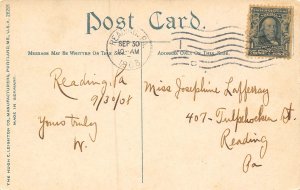 Post Card.
MESSAGE MAY BE WRITTEN ON THIS SIDE
ADDRESS ONLY ON THIS SIDE
READING, PA.
SEP 30
10 AM
1908
Reading, Pa
9/30/08
Yours truly
W.
Miss Josephine Lafferay
407- Tulpehocken St.
Reading
Pa
THE HUGH C. LEIGHTON CO., MANUFACTURERS, PORTLAND, ME., U.S.A.
MADE IN GERMANY.